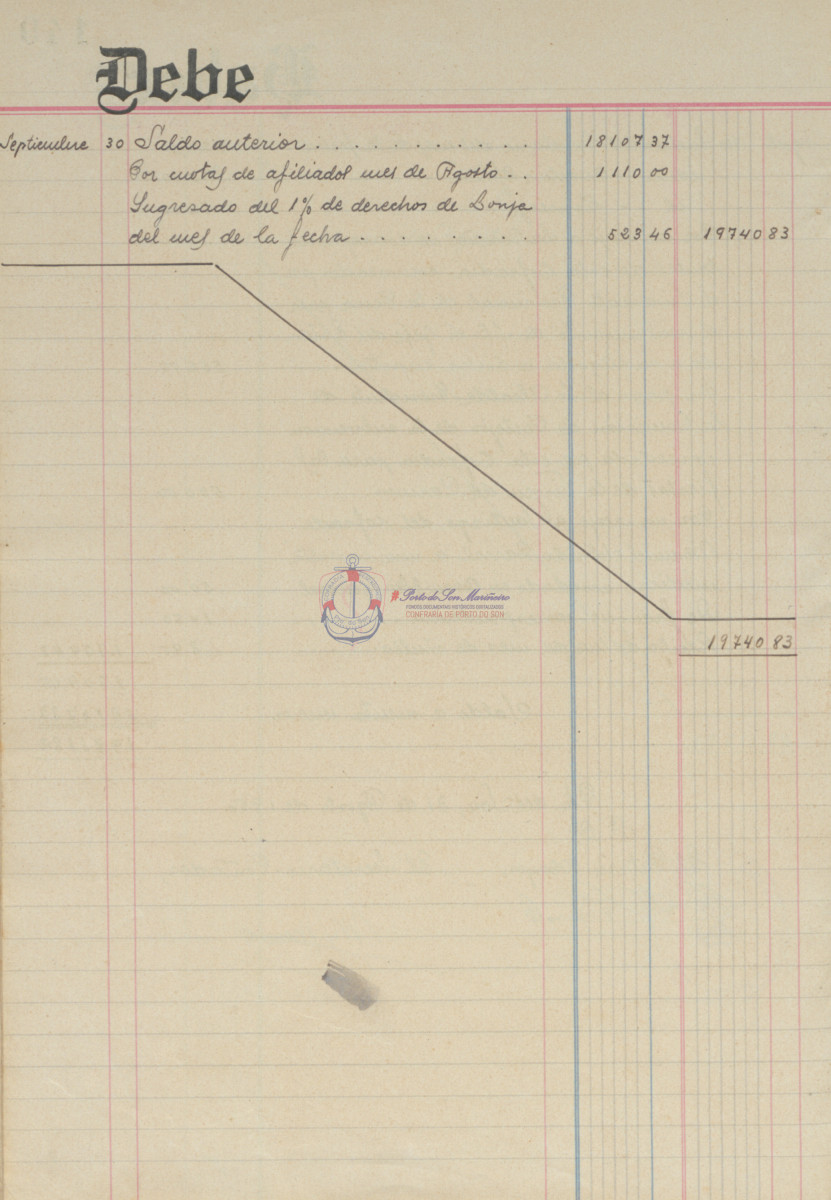 Debe
Septiembre 30 Saldo anterior . . . . . . . . . . . 18107 37
Por cuotas de afiliados mes de Agosto . . 1110 00
Ingresado del 1% de derechos de Lonja
del mes de la fecha . . . . . . . . . 523 46 19740 83
Porto do Son Mariñeiro
FONDOS DOCUMENTAIS HISTÓRICOS DIXITALIZADOS
CONFRARÍA DE PORTO DO SON
19740 83